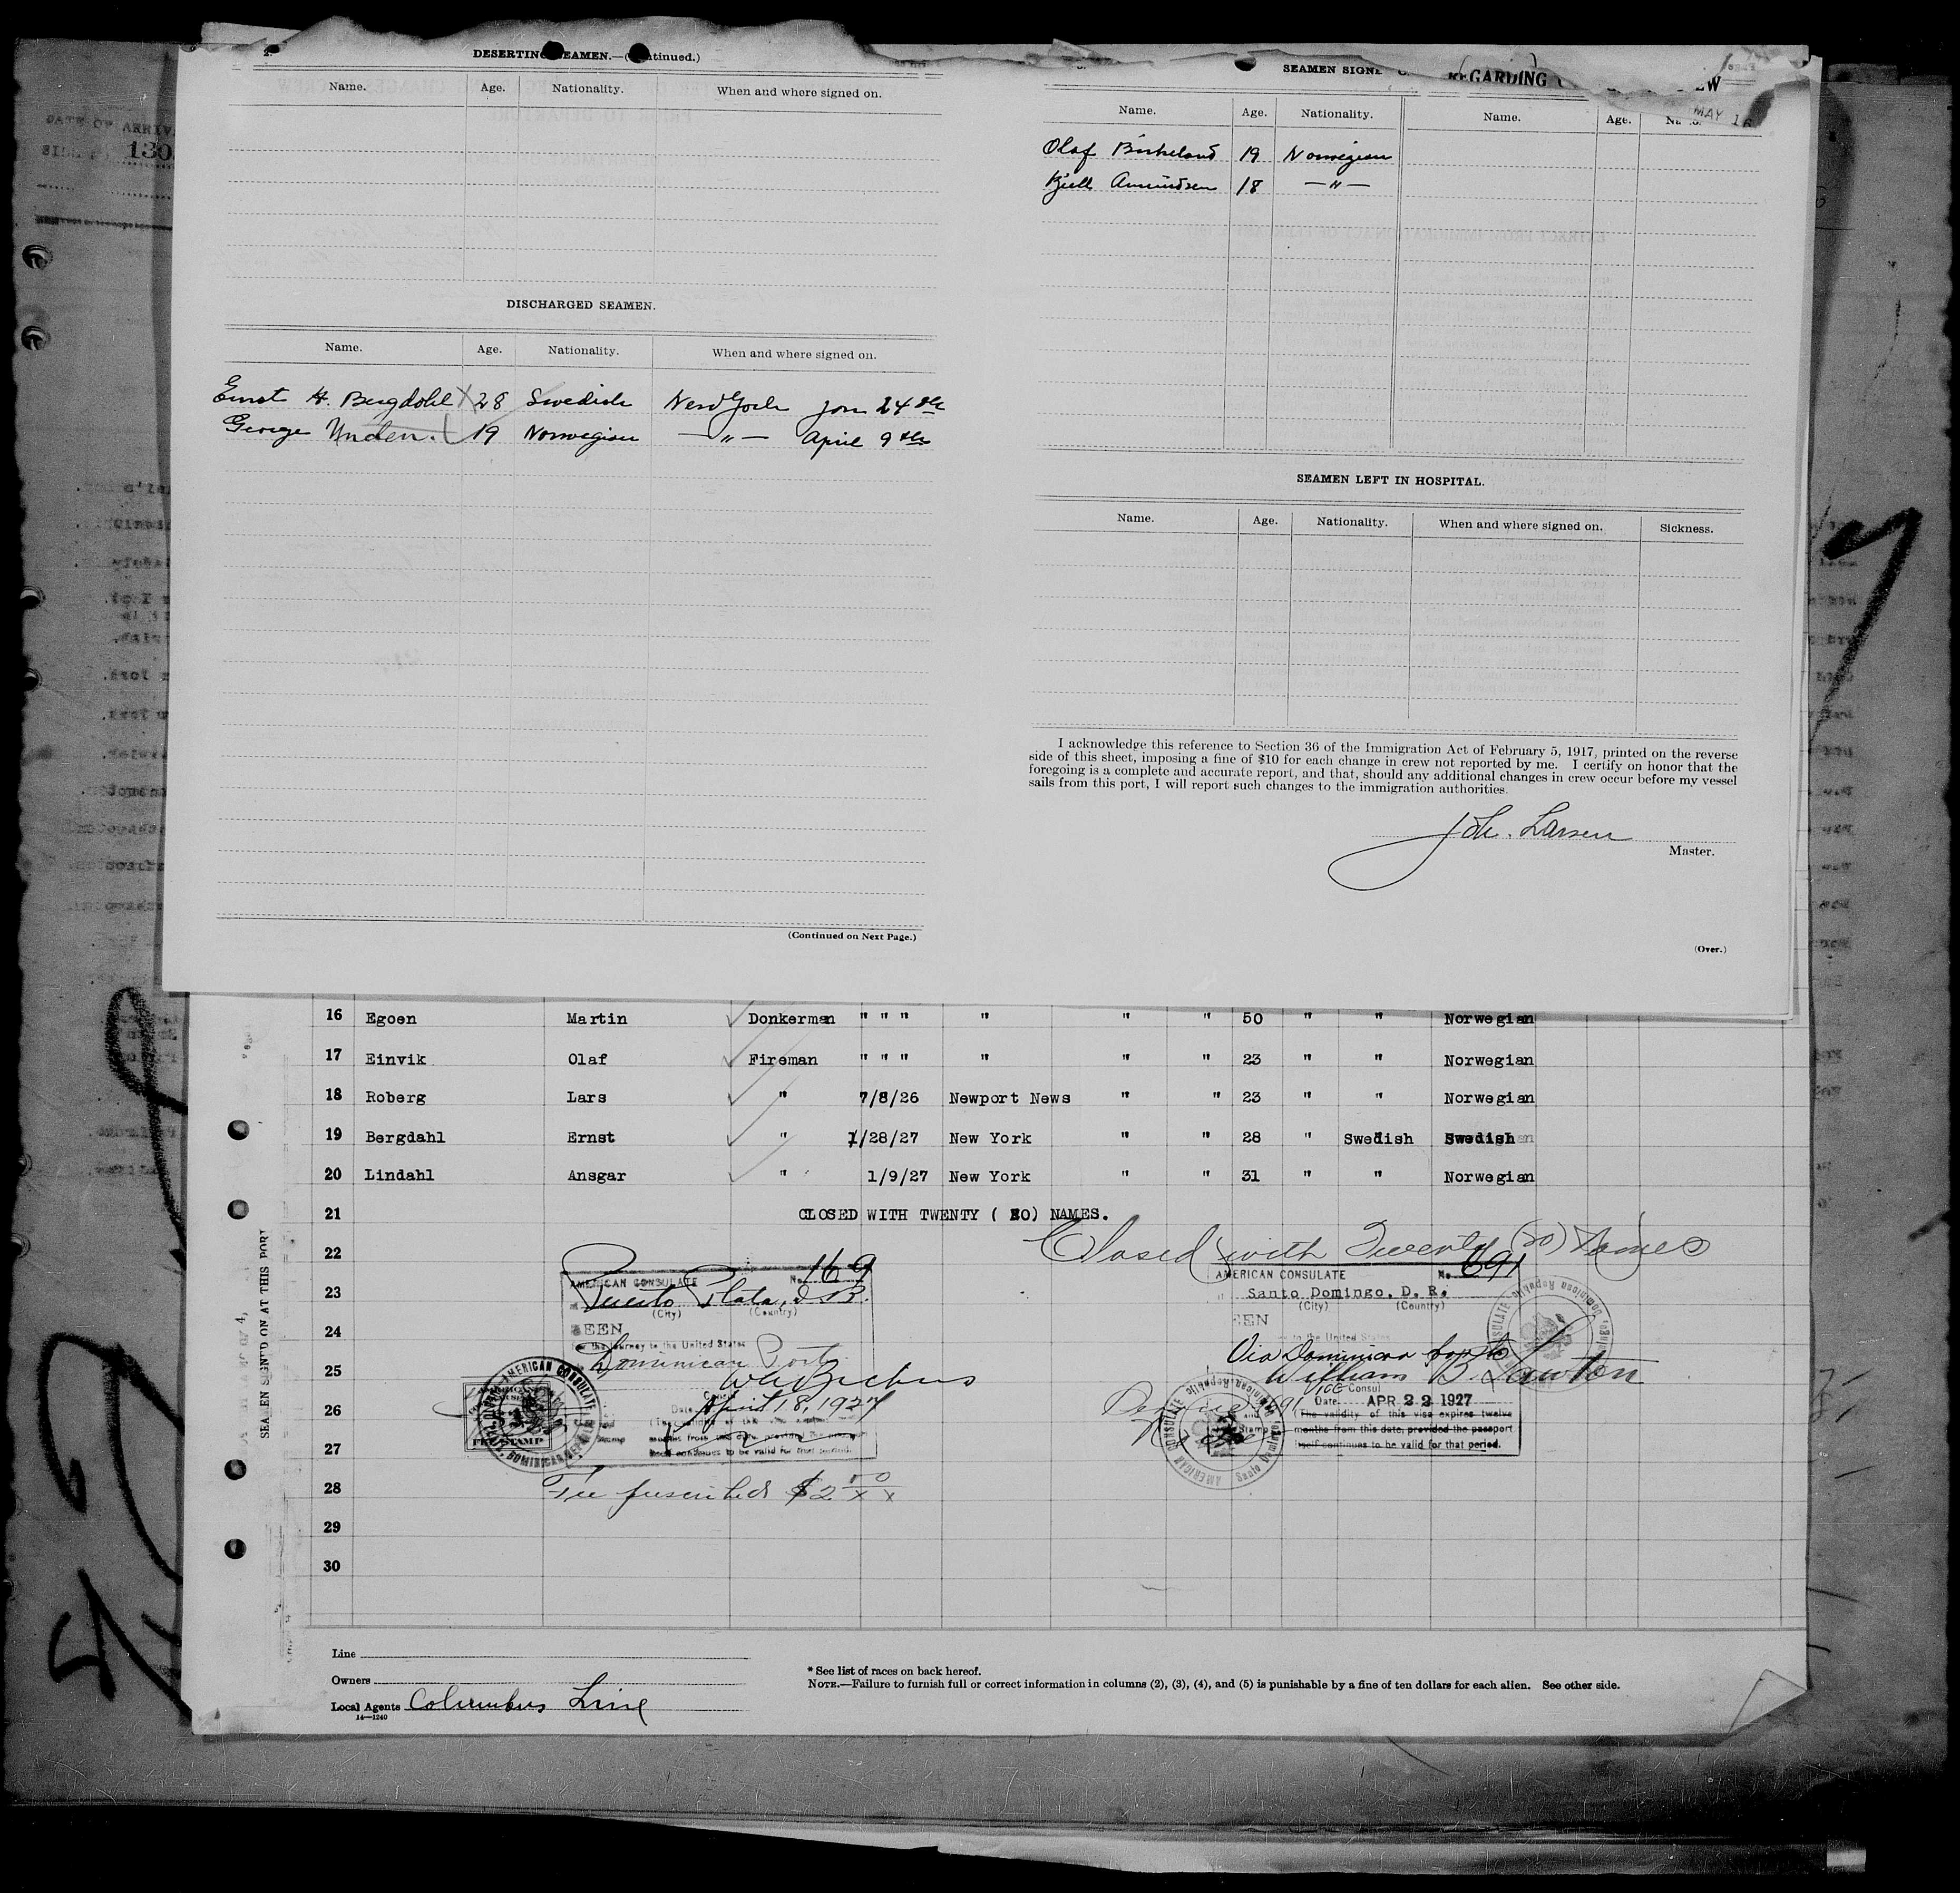 DESERTING SEAMEN.—(Continued.)
Name. Age. Nationality. When and where signed on.
DISCHARGED SEAMEN.
Name. Age. Nationality. When and where signed on.
Ernst H. Bergdahl X 28 Swedish New York Jan 24th
George 19 Norwegian — " — April 9th
(Continued on Next Page.)
SEAMEN SIGNE
REGARDING
EW
MAY 16
Name. Age. Nationality. Name. Age.
Olaf Birkeland 19 Norwegian
Kjell Amundsen 18 — " —
SEAMEN LEFT IN HOSPITAL.
Name. Age. Nationality. When and where signed on. Sickness.
I acknowledge this reference to Section 36 of the Immigration Act of February 5, 1917, printed on the reverse
side of this sheet, imposing a fine of $10 for each change in crew not reported by me. I certify on honor that the
foregoing is a complete and accurate report, and that, should any additional changes in crew occur before my vessel
sails from this port, I will report such changes to the immigration authorities.
Joh. Larsen
Master.
(Over.)
DATE OF ARRIV
130
16 Egoen Martin Donkerman " " " " " " 50 " " Norwegian
17 Einvik Olaf Fireman " " " " " " 23 " " Norwegian
18 Roberg Lars " 7/8/26 Newport News " " 23 " " Norwegian
19 Bergdahl Ernst " 1/28/27 New York " " 28 " Swedish Swedish
20 Lindahl Ansgar " 1/9/27 New York " " 31 " " Norwegian
21 CLOSED WITH TWENTY (20) NAMES.
22 Closed with Twenty (20) Names
23
24
25
26
27
28
29
30
SEAMEN SIGNED ON AT THIS PORT
AMERICAN CONSULATE No. 169
Puerto Plata, D.R.
(City) (Country)
SEEN
For the journey to the United States
Dominican Ports
Consul
Date April 18, 1927
AMERICAN CONSULATE
FEE STAMP
Fee prescribed $2.50
AMERICAN CONSULATE No. 691
Santo Domingo, D. R.
(City) (Country)
EEN
to the United States
Via Dominican ports
William B. Lawton
Vice Consul
Date APR 22 1927
(The validity of this visa expires twelve
months from this date, provided the passport
itself continues to be valid for that period.
Line
Owners
Local Agents Columbus Line
14—1240
* See list of races on back hereof.
NOTE.—Failure to furnish full or correct information in columns (2), (3), (4), and (5) is punishable by a fine of ten dollars for each alien. See other side.